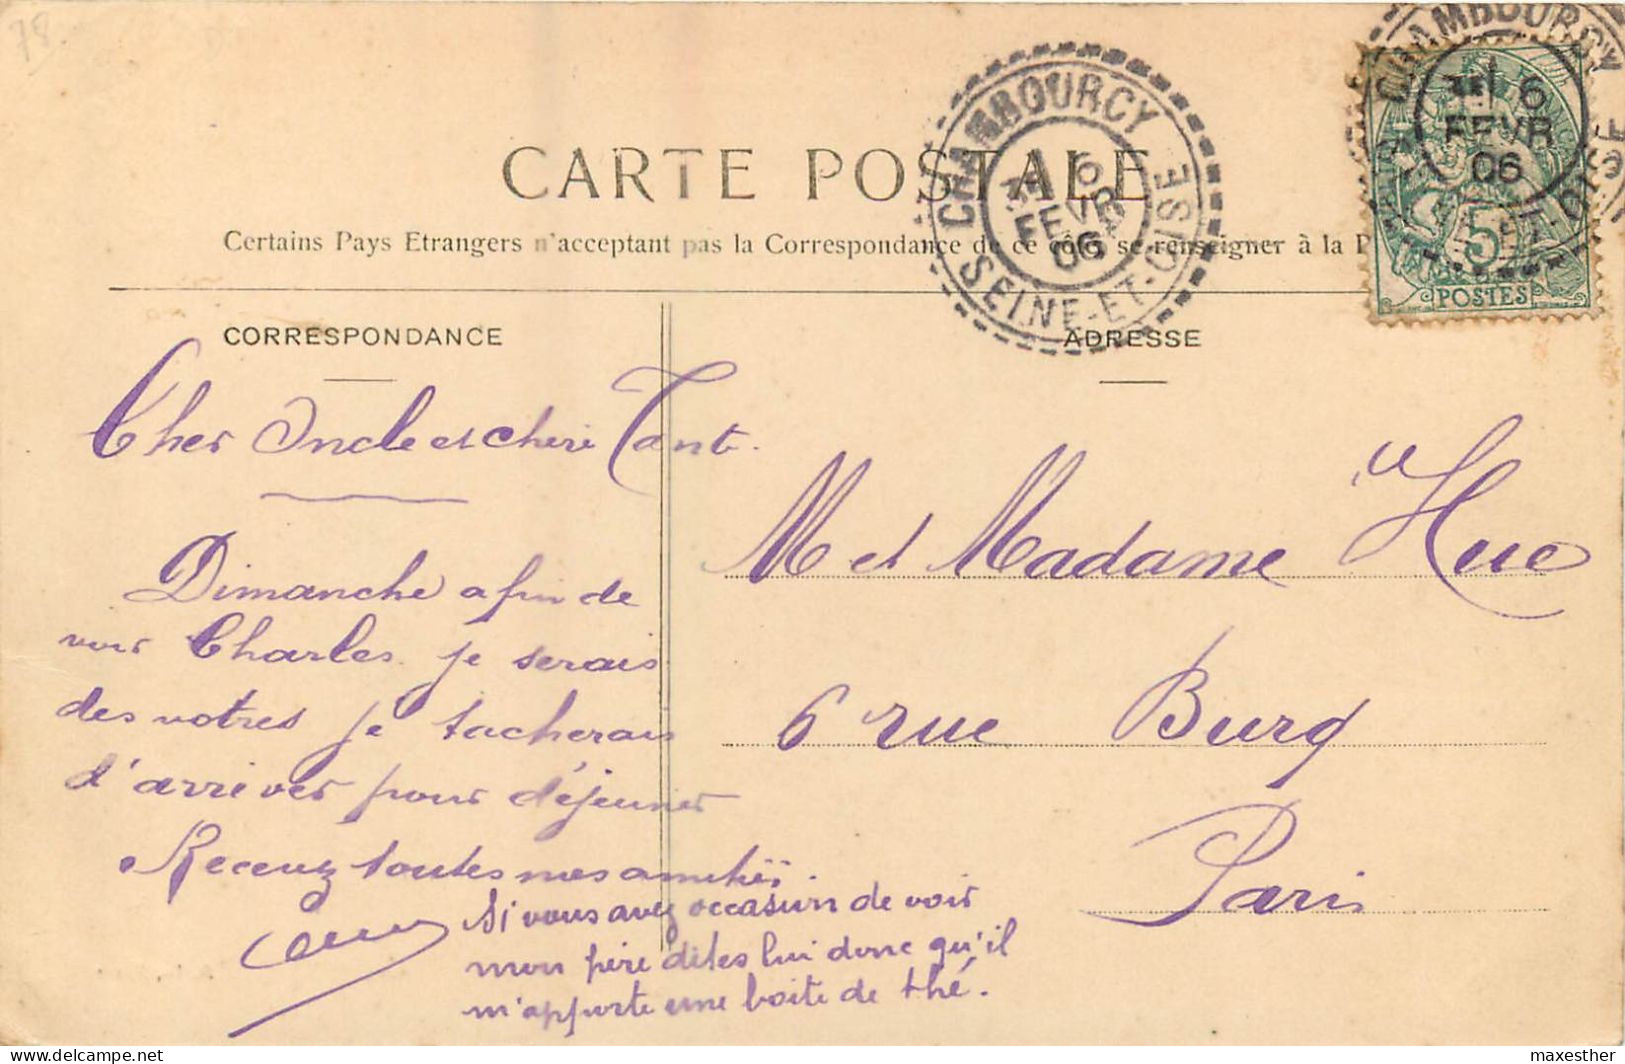 78
CARTE POSTALE
Certains Pays Etrangers n'acceptant pas la Correspondance de ce côté, se renseigner à la P
CHAMBOURCY
6
FEVR
06
SEINE-ET-OISE
CHAMBOURCY
6
FEVR
06
5
POSTES
CORRESPONDANCE
ADRESSE
Cher Oncle et cheri Tant.
Dimanche afin de
voir Charles je serais
des votres je tacherais
d'arriver pour déjeuner
Recevez toutes mes amitiés.
Si vous avez occasion de voir
mon père dites lui donc qu'il
m'apporte une boite de thé.
M et Madame Hue
6 rue Burq
Paris
delcampe.net
maxesther